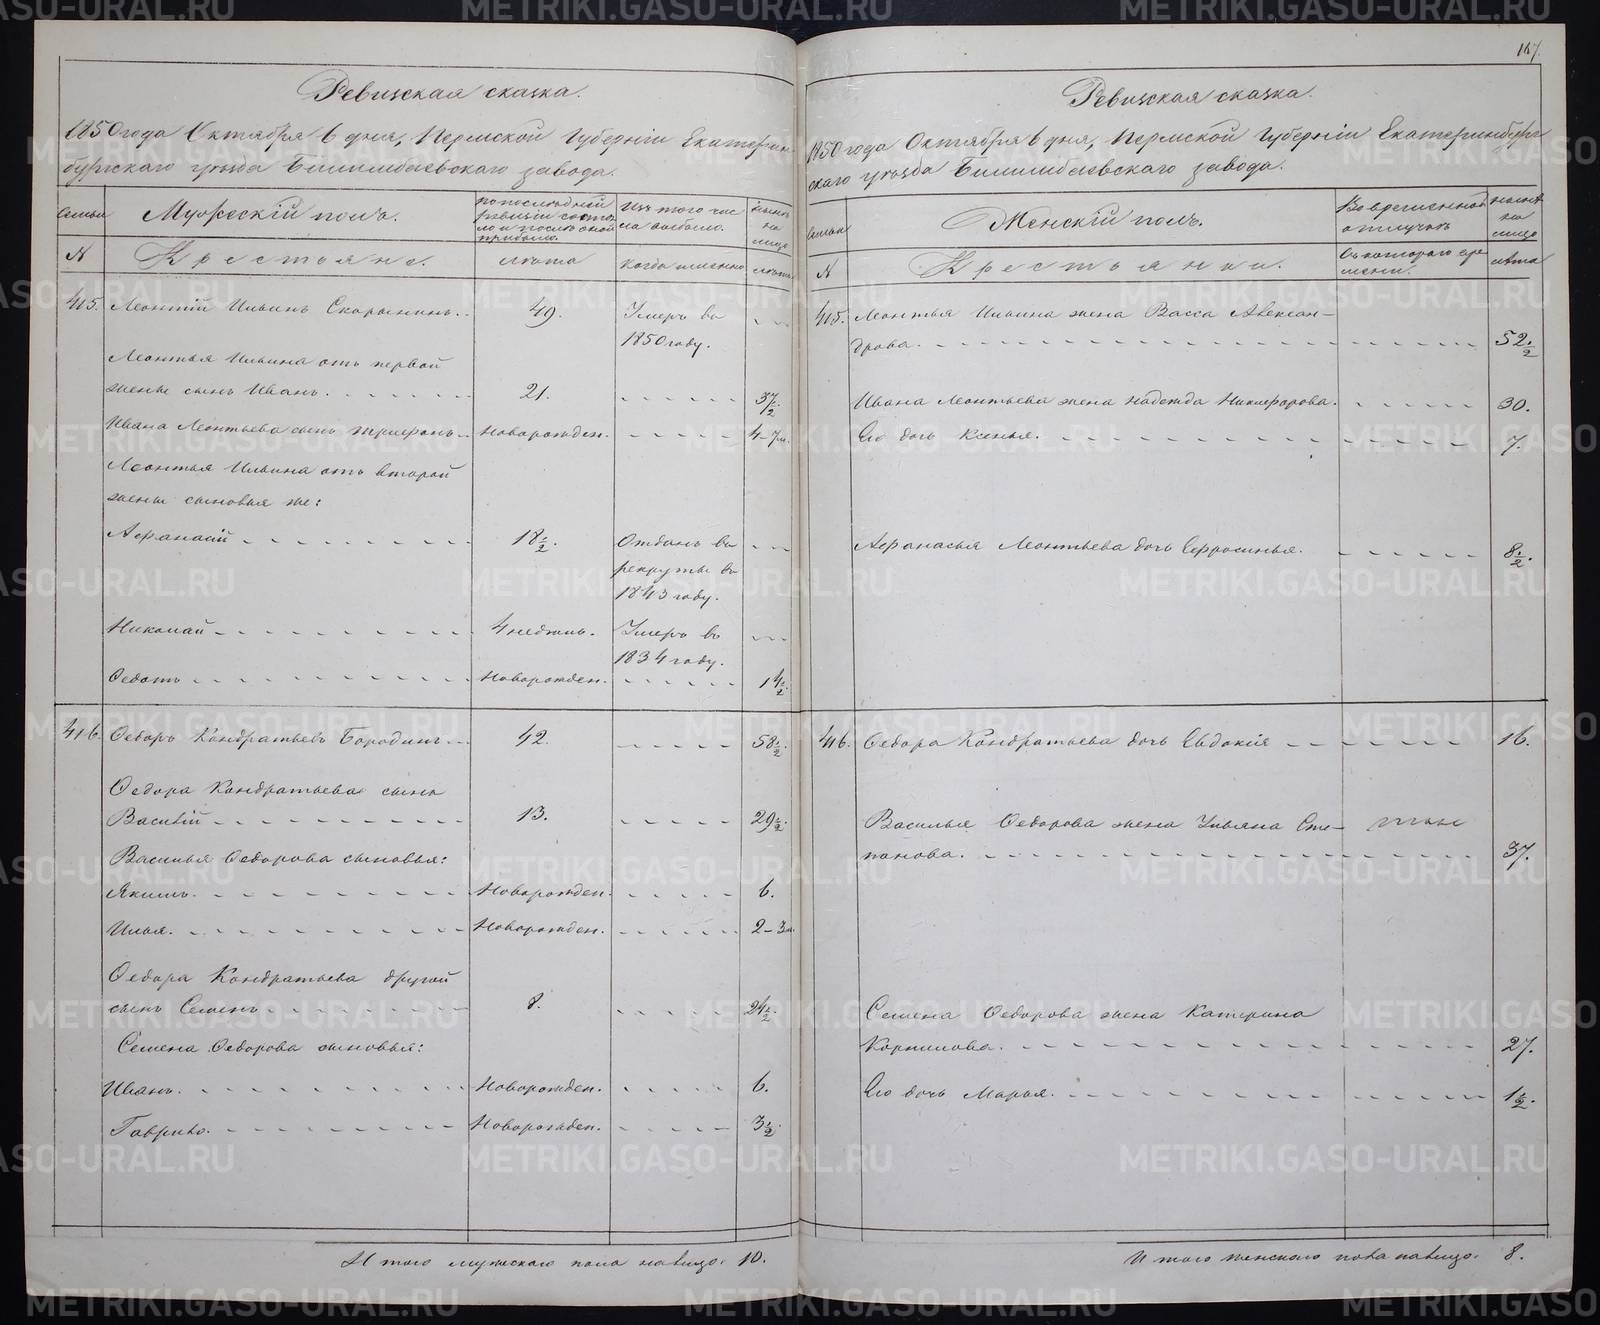 117.
Ревизская сказка.
1850 года Октября 6 дня, Пермской Губерніи Екатерин-
бургскаго уѣзда Билимбаевскаго завода.
Семьи
Мужескій полъ.
По последней ревизіи состояло и после оной прибыло.
Изъ того числа выбыло.
Нынѣ на лицо
N
Крестьяне.
лѣта
Когда именно
лѣта
415. Леонтій Ильинъ Скорынинъ. 49. Умеръ въ
1850 году.
Леонтья Ильина отъ первой
жены сынъ Иванъ. 21. 37½.
Ивана Леонтьева сынъ Трифонъ. Новорожден. 4-7м.
Леонтья Ильина отъ второй
жены сыновья же:
Афанасій 18½. Отданъ въ
рекруты въ
1843 году.
Николай 4 недѣль. Умеръ въ
1834 году.
Федотъ Новорожден. 14½.
416. Федоръ Кондратьевъ Бородинъ. 42. 58½.
Федора Кондратьева сынъ
Василій 13. 29½
Василья Федорова сыновья:
Якимъ. Новорожден. 6.
Илья. Новорожден. 2-3м.
Федора Кондратьева другой
сынъ Семенъ 8. 24½.
Семена Федорова сыновья:
Иванъ. Новорожден. 6.
Гаврило. Новорожден. 3½.
Итого мужескаго пола налицо. 10.
Ревизская сказка.
1850 года Октября 6 дня, Пермской Губерніи Екатеринбург-
скаго уѣзда Билимбаевскаго завода.
Семьи
Женскій полъ.
Во временной отлучкѣ
Нынѣ на лицо
N
Крестьянки.
Съ котораго времени.
лѣта
415. Леонтья Ильина жена Васса Алексан-
дрова. 52½
Ивана Леонтьева жена Надежда Никифорова. 30.
Его дочь Ксенья. 7.
Афанасья Леонтьева дочь Ефросинья. 8½.
416. Федора Кондратьева дочь Евдокія 16.
Василья Федорова жена Ульяна Сте-
панова. 37.
Семена Федорова жена Катерина
Корнилова. 27.
Его дочь Марья. 1½.
Итого женскаго пола налицо. 8.
METRIKI.GASO-URAL.RU